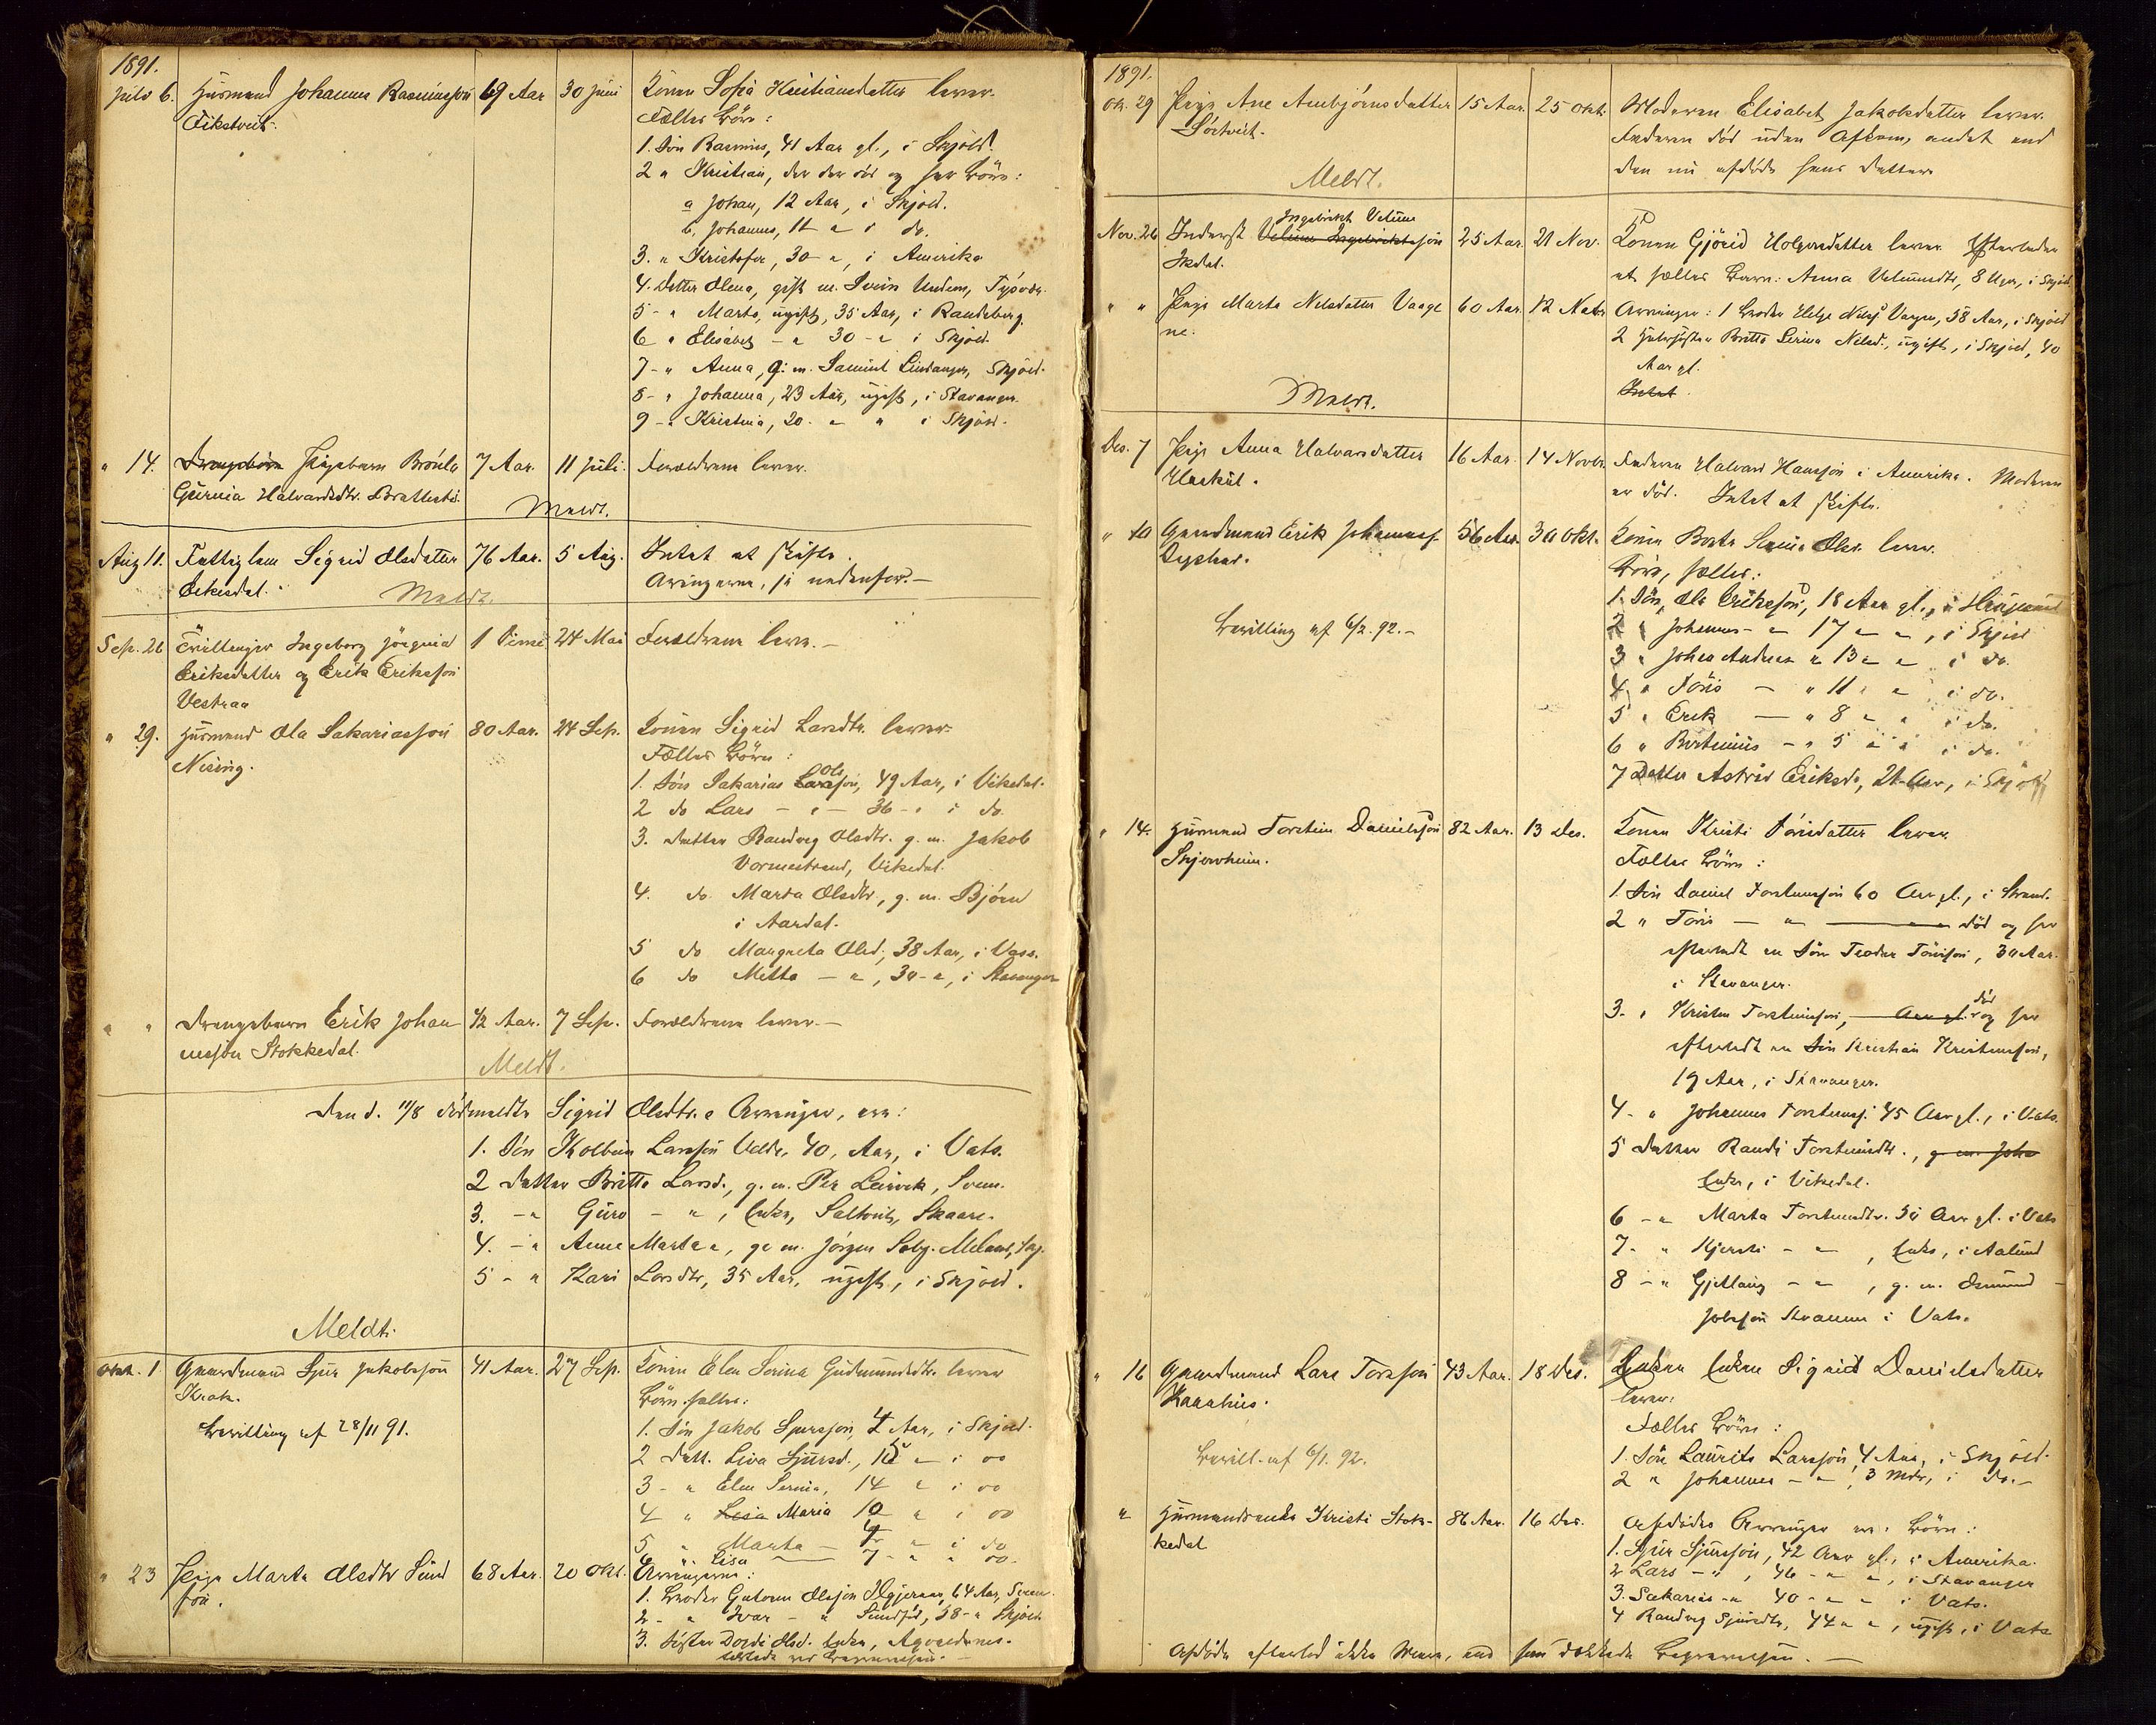 1891.
Juli 6. Husmand Johannes Rasmussøn 69 Aar 30 Juni Konen Sofia Kristiansdatter lever.
Eikstveit. Fælles Børn:
1. Søn Rasmus, 41 Aar gl., i Skjold.
2 " Kristian, der død og har Børn:
a Johan, 12 Aar, i Skjold.
b. Johannes, 11 " i do.
3. " Kristofer, 30 - ", i Amerika
4. Datter Olena, gift m. Svein Undem, Tysvær.
5 - " Marta, ugift, 35 Aar, i Randeberg.
6 " Elisabet - " 30 - " i Skjold.
7 - " Anna, g. m. Samuel Lindanger, Skjold.
8 - " Johanna, 23 Aar, ugift, i Stavanger.
9 - " Kristina, 20 - " " i Skjold.
" 14. Drengebarn Pigebarn 7 Aar. 11 Juli. Forældrene lever.
Gurina Halvardsdtr. Brattestø.
Meldt.
Aug 11. Fattiglem Sigrid Olsdatter 76 Aar. 5 Aug. Intet at skifte.
Ørkesdal. Arvingerne, se nedenfor. -
Meldt.
Sep. 26 Tvillinger Ingeborg Jørgina 1 Time 24 Mai Forældrene lever. -
Eriksdatter og Erik Erikssøn
Vestraa
" 29. Husmand Ola Sakariassøn 80 Aar. 24 Sep. Konen Sigrid Larsdtr. lever.
Nising. Fælles Børn:
1. Søn Sakarias Larssøn Ols, 49 Aar, i Vikedal.
2 do Lars - " - 36 - " i do.
3. Datter Randveg Olsdtr. g. m. Jakob
Vormestrand, Vikedal.
4. do. Marta Olsdtr, g. m. Bjørn
i Aardal.
5 do Margreta Olsd., 38 Aar, i Vats.
6 do Mette - ", 30 - ", i Stavanger
" " Drengebarn Erik Johan- 1/2 Aar. 7 Sep. Forældrene lever. -
nessøn Stokkedal.
Meldt.
Den d. 11/8 dødmeldte Sigrid Olsdtr.s Arvinger, ere:
1. Søn Kolbein Larssøn 40, Aar, i Vats.
2 Datter Britta Larsd., g. m. Per Leirvik, Sveen.
3. - " Guro - ", Enke, Saltveit, Skaare.
4. - " Anne Marta ", g. m. Jørgen Meland, Skj.
5 - " Kari Larsdtr, 35 Aar, ugift, i Skjold.
Meldt.
Okt. 1 Gaardmand Sjur Jakobssøn 41 Aar. 27 Sep. Konen Elen Serina Gudmundsdtr. lever
Krak. Børn fælles:
Bevilling af 28/11 91. 1. Søn Jakob Sjurssøn, 4 Aar, i Skjold.
2 Datt. Liva Sjursd., 15 " i do
3 - " Elen Serina, 14 " i do
4 " Lisa Maria 10 " i do
5 " Marta - " i do
6 " Lisa 7 - " " do.
" 23 Pige Marta Olsdtr Sund- 68 Aar. 20 Okt. Arvingerne:
før. 1. Broder Gutorm Olssøn 64 Aar, Sveen
2 - " Ivar - " Sundfør, 58 - " Skjold
3. Søster Dordi Olsd. Enke, Avaldsnes.
1891.
Ok. 29 Pige Ane Anbjørnsdatter 15 Aar. 25 Okt. Moderen Elisabet Jakobsdatter lever.
Sørtveit. Faderen død uden Afkom, andet end
den nu afdøde hans datter
Meldt.
Ingebrikt Velum-
Nov. 26 Inderst Velum Ingebriktssøn 25 Aar. 21 Nov. Konen Gjørid Holgersdatter lever. Efterlader
Ikdal. et fælles Barn: Anna Velumsdtr, 8 Uger, i Skjold.
" " Pige Marta Nilsdatter Vaage 60 Aar. 12 Arvinger: 1 Broder Helge Nilss. Vaagen, 58 Aar, i Skjold
ne. 2 Halvsøster Britta Serina Nilsd., ugift, i Skjold, 40
Aar gl.
Intet.
Meldt.
Des. 7 Pige Anna Halvarsdatter 16 Aar. 14 Novbr. Faderen Halvard Hanssøn i Amerika. Moderen
er død. Intet at skifte.
" 10 Gaardmand Erik Johanness. 56 Aar. 30 Okt. Konen Berta Serina Olsd. lever.
Børn, fælles:
1. Søn, Ola Erikssøn, 18 Aar gl.,
Bevilling af 6/2. 92. - 2 " Johannes - " 17 " ", i Skjold
3 " Johan Andreas " 13 " " i do.
4 " Tøris - " 11 " " i do.
5 " Erik - " 8 " " i do.
6 " Bertinius - " 5 " " i do.
7 Datter Astrid Eriksd., 21 Aar, i Skjold
" 14. Husmand Torstein Danielssøn 82 Aar. 13 Des. Konen Kristi Tørisdatter lever
Skjerrheim. Fælles Børn:
1. Søn Daniel Torsteinssøn 60 Aar gl., i Strand.
2 " Tøris - " død og har
efterladt en Søn Teodor Tørissøn, 30 Aar.
i Stavanger.
død
3. " Kristen Torsteinssøn, Aar gl. og har
efterladt en Søn Kristian Kristenssøn,
19 Aar, i Stavanger.
4 - " Johannes Torsteinss. 45 Aar gl., i Vats.
5 Datter Randi Torsteinsdtr., g. m. Joha
Enke, i Vikedal.
6 - " Marta Torsteinsdtr. 50 Aar gl. i Vats
7 - " Kjersti - " , Enke, i Aalund
8 - " Gjetlaug - " , g. m. Osmund
Jobssøn i Vats.
" 16 Gaardmand Lars Torssøn 43 Aar. 18 Des. Enken Sigrid Danielsdatter
Haarahus. lever.
Fælles Børn:
Bevill. af 6/1. 92. 1. Søn Laurits Larssøn, 4 Aar, i Skjold.
2 " Johannes - ", 3 Mdr, i do. -
" Husmandsenke Kristi Stok- 86 Aar. 16 Des. Afdødes Arvinger ere Børn:
kedal 1. Sjur Sjurssøn, 42 Aar gl., i Amerika.
2 Lars - ", 46 - " ", i Stavanger
3. Sakarias - " 40 - " " i Vats.
4 Randveg Sjursdtr, 44 " ", ugift, i Vats
Afdøde efterlod ikke mere, end som dækkede Begravelsen. -